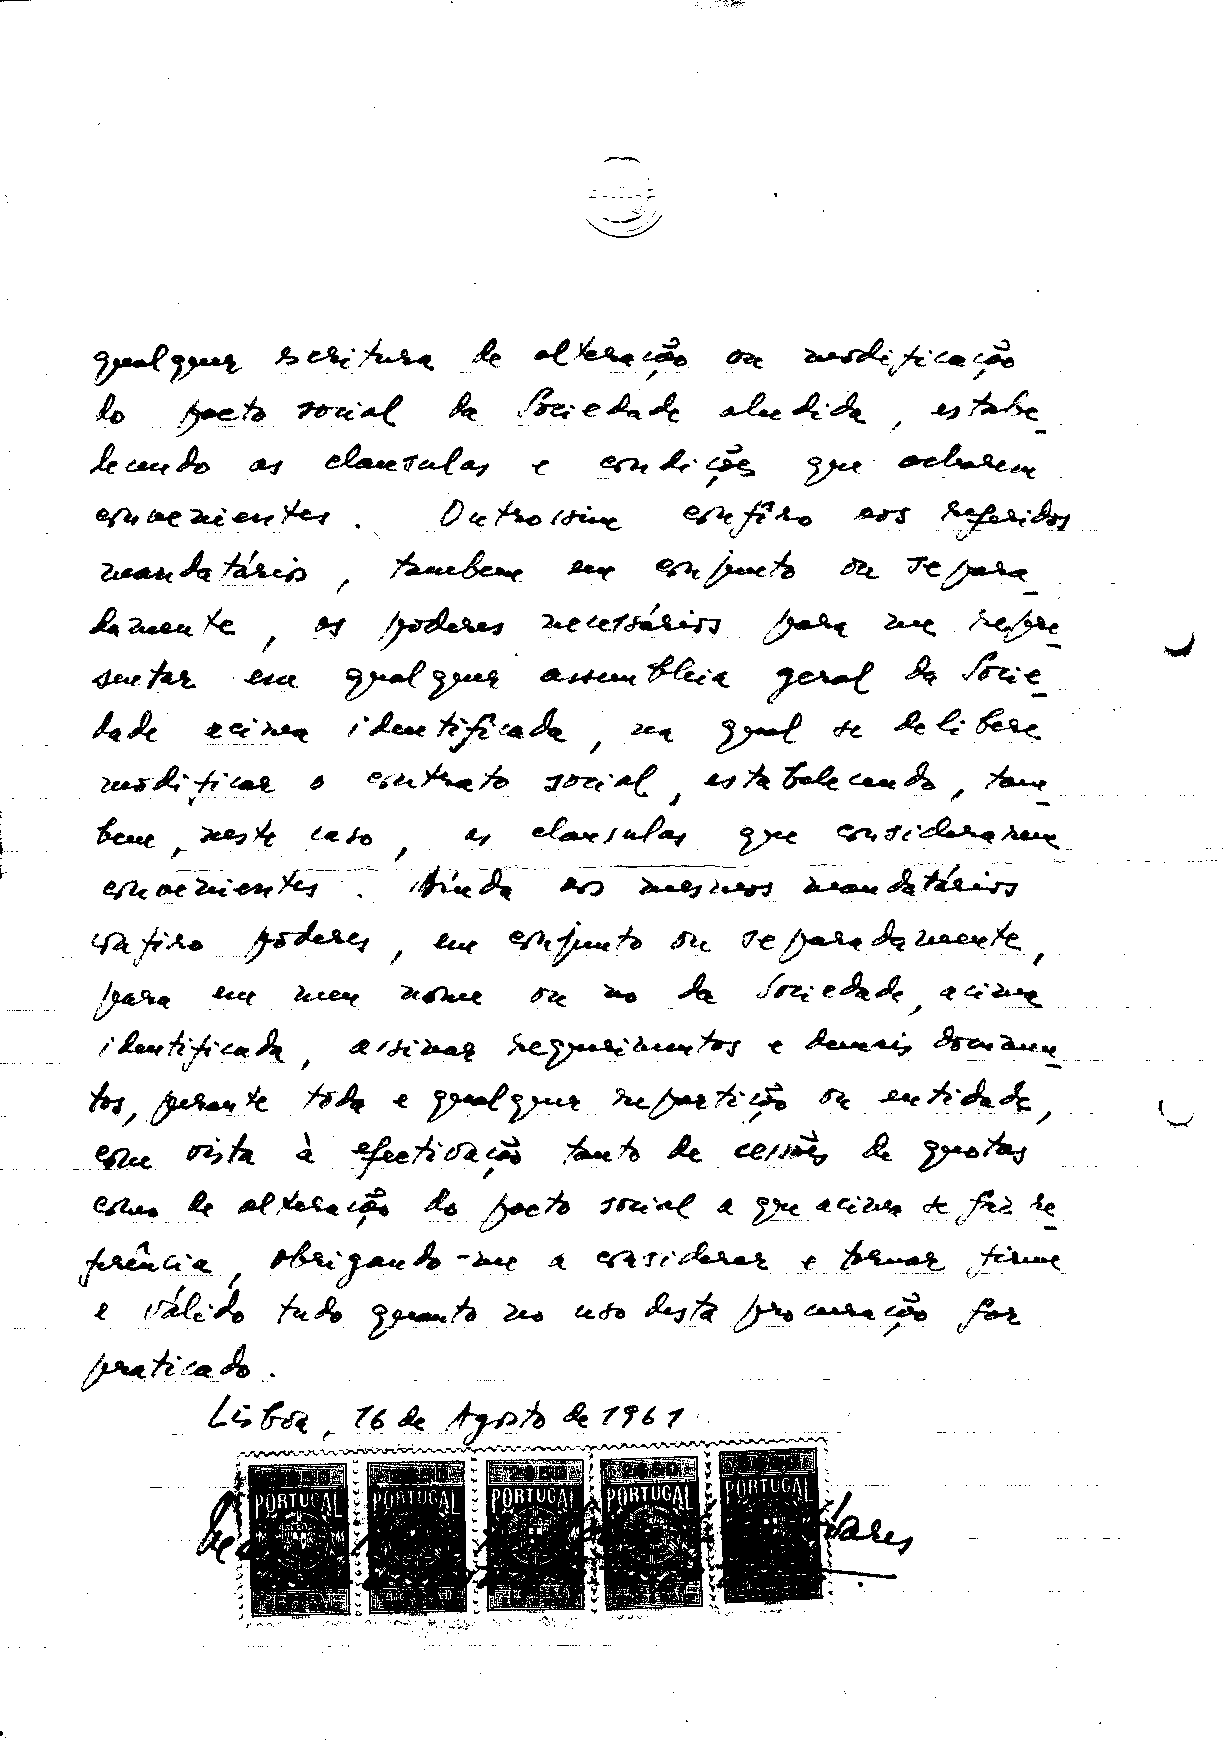 qualquer escritura de alteração ou modificação
do pacto social da Sociedade aludida, estabe_
lecendo as clausulas e condições que acharem
convenientes. Outrossim confiro aos referidos
mandatários, tambem em conjunto ou separa_
damente, os poderes necessários para me repre_
sentar em qualquer assembleia geral da Socie_
dade acima identificada, na qual se delibere
modificar o contrato social, estabelecendo, tam_
bem, neste caso, as clausulas que considerarem
convenientes. Ainda aos mesmos mandatários
confiro pôderes, em conjunto ou separadamente,
para em meu nome ou no da Sociedade, acima
identificada, assinar requerimentos e demais documen_
tos, perante toda e qualquer repartição ou entidade,
com vista à efectivação tanto de cessões de quotas
como de alteração do pacto social a que acima se faz re_
ferência, obrigando-me a considerar e tornar firme
e válido tudo quanto no uso desta procuração for
praticado.
Lisboa, 16 de Agosto de 1961
PORTUGAL PORTUGAL PORTUGAL PORTUGAL PORTUGAL